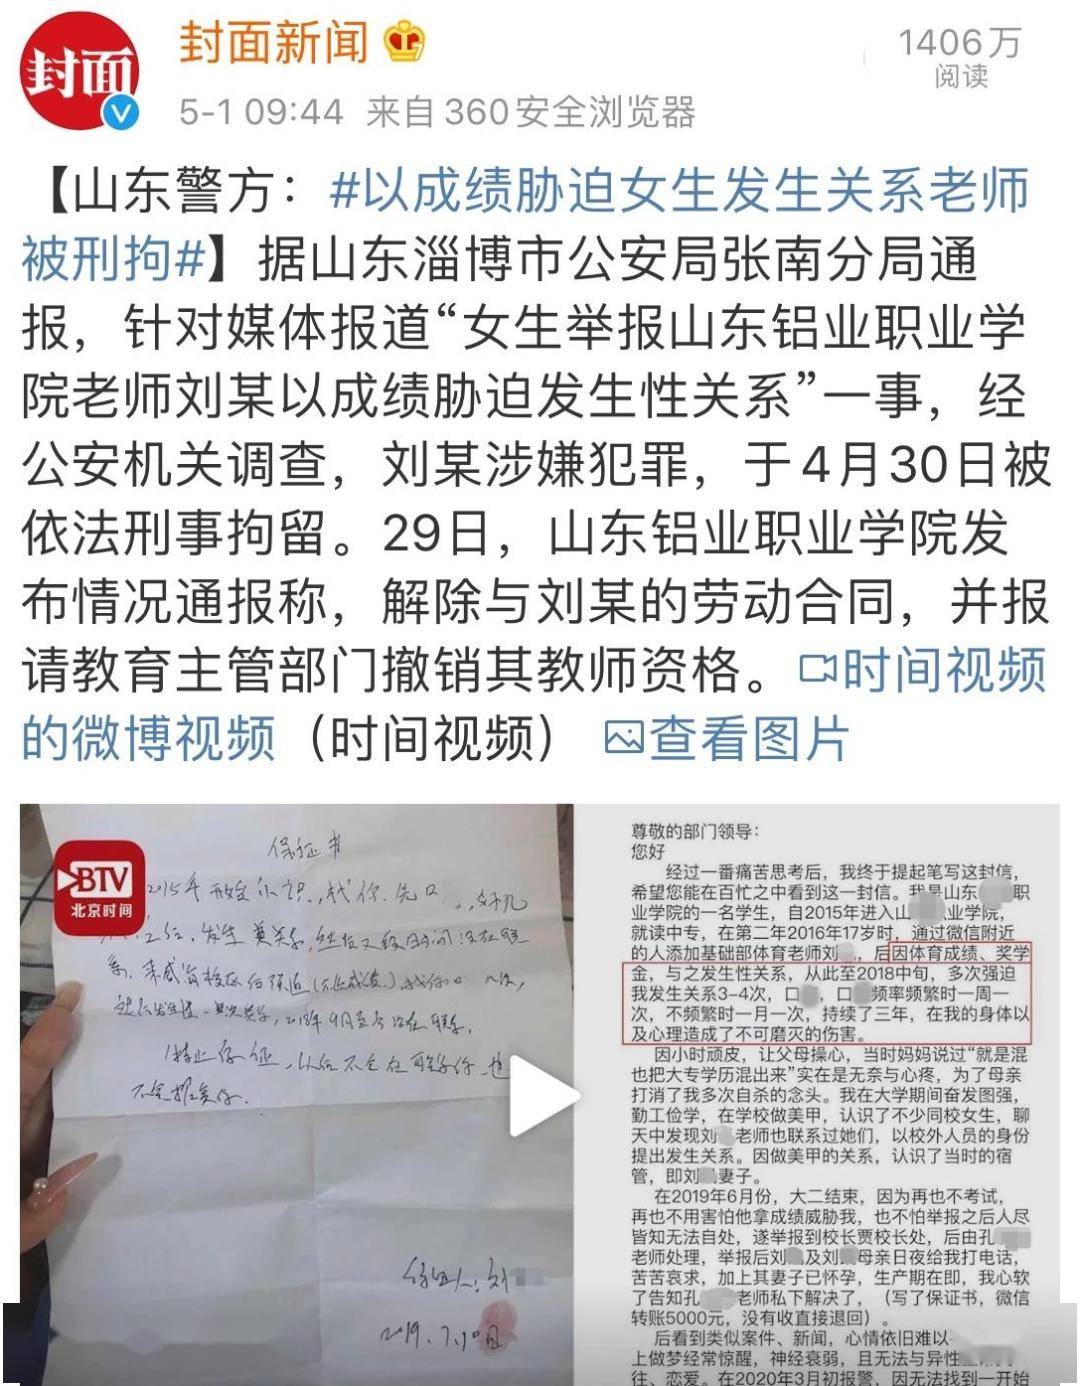 封面
封面新闻
1406万
阅读
5-1 09:44 来自360安全浏览器
【山东警方：#以成绩胁迫女生发生关系老师
被刑拘#】据山东淄博市公安局张南分局通
报，针对媒体报道“女生举报山东铝业职业学
院老师刘某以成绩胁迫发生性关系”一事，经
公安机关调查，刘某涉嫌犯罪，于4月30日被
依法刑事拘留。29日，山东铝业职业学院发
布情况通报称，解除与刘某的劳动合同，并报
请教育主管部门撤销其教师资格。时间视频
的微博视频（时间视频） 查看图片
BTV
北京时间
保证书
2015年
保证人：刘
2019.7.
尊敬的部门领导：
您好
经过一番痛苦思考后，我终于提起笔写这封信，
希望您能在百忙之中看到这一封信。我是山东 职
业学院的一名学生，自2015年进入山 业学院，
就读中专，在第二年2016年17岁时，通过微信附近
的人添加基础部体育老师刘 ，后因体育成绩、奖学
金，与之发生性关系，从此至2018中旬，多次强迫
我发生关系3-4次，口 ，口 频率频繁时一周一
次，不频繁时一月一次，持续了三年，在我的身体以
及心理造成了不可磨灭的伤害。
因小时顽皮，让父母操心，当时妈妈说过“就是混
也把大专学历混出来”实在是无奈与心疼，为了母亲
打消了我多次自杀的念头。我在大学期间奋发图强，
勤工俭学，在学校做美甲，认识了不少同校女生，聊
天中发现刘 老师也联系过她们，以校外人员的身份
提出发生关系。因做美甲的关系，认识了当时的宿
管，即刘 妻子。
在2019年6月份，大二结束，因为再也不考试，
再也不用害怕他拿成绩威胁我，也不怕举报之后人尽
皆知无法自处，遂举报到校长贾校长处，后由孔
老师处理，举报后刘 及刘 母亲日夜给我打电话，
苦苦哀求，加上其妻子已怀孕，生产期在即，我心软
了告知孔 老师私下解决了，（写了保证书，微信
转账5000元，没有收直接退回）。
后看到类似案件、新闻，心情依旧难以
上做梦经常惊醒，神经衰弱，且无法与异性
往、恋爱。在2020年3月初报警，因无法找到一开始